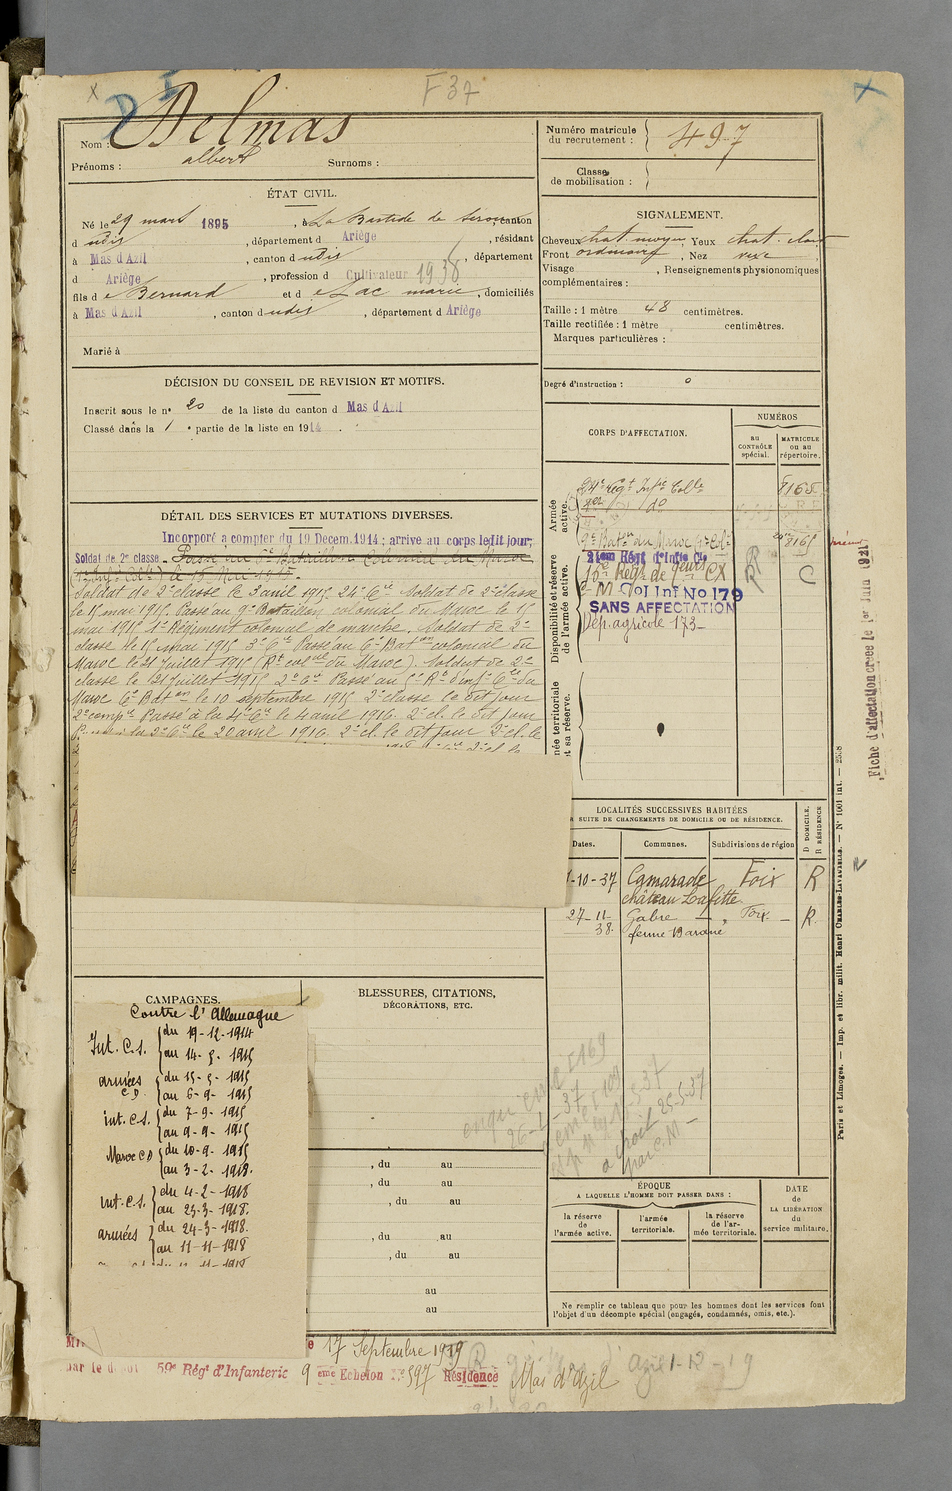 F 37
D I
Nom : Delmas
Prénoms : albert Surnoms :
Numéro matricule
du recrutement : 497
Classe
de mobilisation :
ÉTAT CIVIL.
Né le 29 mars 1895, à La Bastide de Serou, canton
d udit, département d Ariège, résidant
à Mas d'Azil, canton d udit, département
d Ariège, profession d Cultivateur 1938
fils de Bernard et de Lac marie, domiciliés
à Mas d'Azil, canton d udit, département d Ariège
Marié à
SIGNALEMENT.
Cheveux chat. moyen Yeux chat. clair
Front ordinaire, Nez vexe
Visage , Renseignements physionomiques
complémentaires :
Taille : 1 mètre 48 centimètres.
Taille rectifiée : 1 mètre centimètres.
Marques particulières :
Degré d'instruction : 0
DÉCISION DU CONSEIL DE REVISION ET MOTIFS.
Inscrit sous le n° 20 de la liste du canton d Mas d'Azil
Classé dans la 1 e partie de la liste en 1914.
DÉTAIL DES SERVICES ET MUTATIONS DIVERSES.
Incorporé a compter du 19 Decem. 1914; arrivé au corps ledit jour;
Soldat de 2e classe. Passé au 5e Bataillon Colonial du Maroc
le 15 Mai 1915.
Soldat de 2e classe le 5 avril 1915 24e Cie Soldat de 2e classe
le 15 mai 1915. Passé au 9e Bataillon colonial du Maroc le 15
mai 1915 1er Régiment colonial de marche. Soldat de 2e
classe le 15 mai 1915 3e Cie Passé au 6e Baton colonial du
Maroc le 21 Juillet 1915 (Rt colal du Maroc). Soldat de 2e
classe le 21 Juillet 1915 2e Cie Passé au Rt d'infie Cle du
Maroc 6e Baton le 10 septembre 1915 2e classe le dit jour
2e compie Passé à la 4e Cie le 4 avril 1916. 2e cl. le dit jour
la 2e Cie le 20 avril 1916. 2e cl. le dit jour 2e cl. le
CORPS D'AFFECTATION.
NUMÉROS
au
CONTRÔLE
spécial.
MATRICULE
ou au
répertoire.
Armée
active.
24e Régt Infie Colle 8165
do
9e Baton du Maroc 8165
Disponibilité et réserve
de l'armée active.
21eme Régt d'Inftie Cle
CX C
C M Mol Inf No 179
SANS AFFECTATION
Dép. agricole 173
née territoriale
et sa réserve.
LOCALITÉS SUCCESSIVES HABITÉES
R SUITE DE CHANGEMENTS DE DOMICILE OU DE RÉSIDENCE.
D DOMICILE.
R RÉSIDENCE
Dates. Communes. Subdivisions de région
1-10-37 Camarade Foix R
château Lafitte
27-11- Gabre Foix R.
38. ferme
Fiche d'affectation créée le 1er Juin 1921
Paris et Limoges. — Imp. et libr. milit. Henri CHARLES-LAVAUZELLE. — N° 1001 int. — 2558
CAMPAGNES.
Contre l'Allemagne
Int. C.S. du 19-12-1914
au 14-5-1915
armées C.D. du 15-5-1915
au 6-9-1915
int. C.S. du 7-9-1915
au 9-9-1915
Maroc C D du 10-9-1915
au 3-2-1918.
int. C.S. du 4-2-1918
au 23-3-1918.
armées du 24-3-1918.
au 11-11-1918
BLESSURES, CITATIONS,
DÉCORATIONS, ETC.
26-1-37
25-5-37
, du au
, du au
, du au
, du au
, du au
au
au
ÉPOQUE
A LAQUELLE L'HOMME DOIT PASSER DANS :
la réserve
de
l'armée active.
l'armée
territoriale.
la réserve
de l'ar-
mée territoriale.
DATE
de
LA LIBÉRATION
du
service militaire.
Ne remplir ce tableau que pour les hommes dont les services font
l'objet d'un décompte spécial (engagés, condamnés, omis, etc.).
17 Septembre 1919
par le dépôt 59e Régt d'Infanterie 9 eme Echelon N° 597 Résidence Mas d'Azil